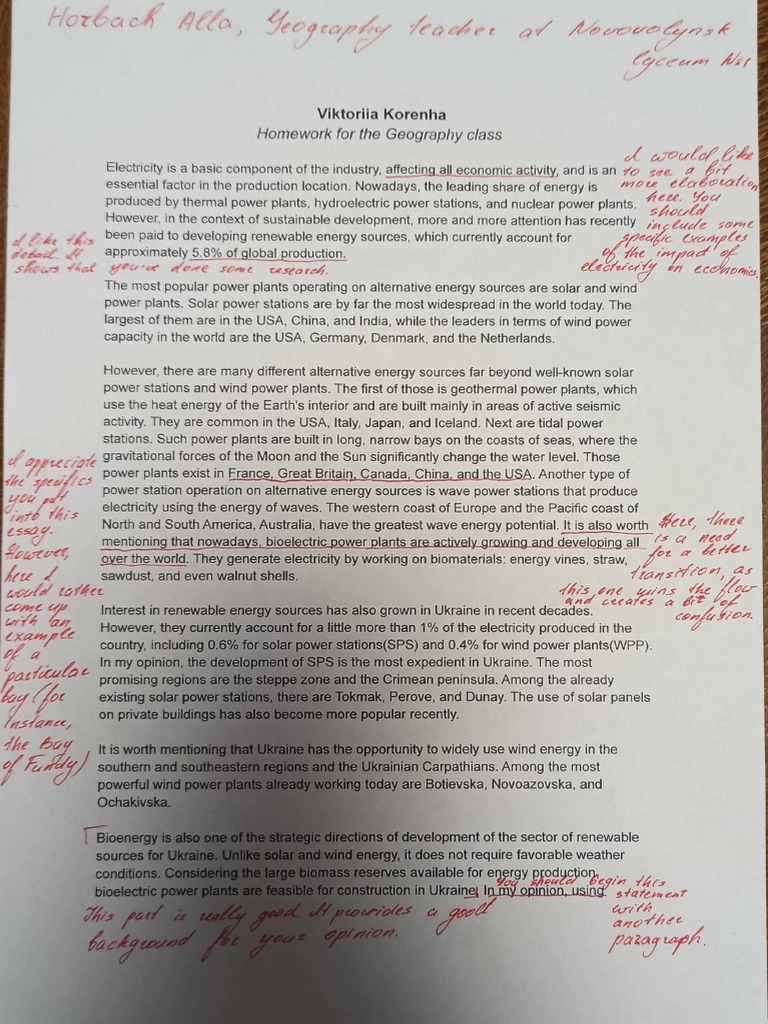 Horbach Alla, Geography teacher at Novovolynsk
lyceum №1
Viktoriia Korenha
Homework for the Geography class
Electricity is a basic component of the industry, affecting all economic activity, and is an
essential factor in the production location. Nowadays, the leading share of energy is
produced by thermal power plants, hydroelectric power stations, and nuclear power plants.
However, in the context of sustainable development, more and more attention has recently
been paid to developing renewable energy sources, which currently account for
approximately 5.8% of global production.
I would like
to see a bit
more elaboration
here. You
should
include some
specific examples
of the impact of
electricity on economics.
I like this
detail. It
shows that you've done some research.
The most popular power plants operating on alternative energy sources are solar and wind
power plants. Solar power stations are by far the most widespread in the world today. The
largest of them are in the USA, China, and India, while the leaders in terms of wind power
capacity in the world are the USA, Germany, Denmark, and the Netherlands.
However, there are many different alternative energy sources far beyond well-known solar
power stations and wind power plants. The first of those is geothermal power plants, which
use the heat energy of the Earth's interior and are built mainly in areas of active seismic
activity. They are common in the USA, Italy, Japan, and Iceland. Next are tidal power
stations. Such power plants are built in long, narrow bays on the coasts of seas, where the
gravitational forces of the Moon and the Sun significantly change the water level. Those
power plants exist in France, Great Britain, Canada, China, and the USA. Another type of
power station operation on alternative energy sources is wave power stations that produce
electricity using the energy of waves. The western coast of Europe and the Pacific coast of
North and South America, Australia, have the greatest wave energy potential. It is also worth
mentioning that nowadays, bioelectric power plants are actively growing and developing all
over the world. They generate electricity by working on biomaterials: energy vines, straw,
sawdust, and even walnut shells.
I appreciate
the specifics
you put
into this
essay.
However,
here I
would rather
come up
with an
example
of a
particular
bay (for
instance,
the Bay
of Fundy)
Here, there
is a need
for a better
transition, as
this one ruins the flow
and creates a bit of
confusion.
Interest in renewable energy sources has also grown in Ukraine in recent decades.
However, they currently account for a little more than 1% of the electricity produced in the
country, including 0.6% for solar power stations(SPS) and 0.4% for wind power plants(WPP).
In my opinion, the development of SPS is the most expedient in Ukraine. The most
promising regions are the steppe zone and the Crimean peninsula. Among the already
existing solar power stations, there are Tokmak, Perove, and Dunay. The use of solar panels
on private buildings has also become more popular recently.
It is worth mentioning that Ukraine has the opportunity to widely use wind energy in the
southern and southeastern regions and the Ukrainian Carpathians. Among the most
powerful wind power plants already working today are Botievska, Novoazovska, and
Ochakivska.
Bioenergy is also one of the strategic directions of development of the sector of renewable
sources for Ukraine. Unlike solar and wind energy, it does not require favorable weather
conditions. Considering the large biomass reserves available for energy production,
bioelectric power plants are feasible for construction in Ukraine. In my opinion, using
You should begin this
statement
with
another
paragraph.
This part is really good. It provides a good
background for your opinion.